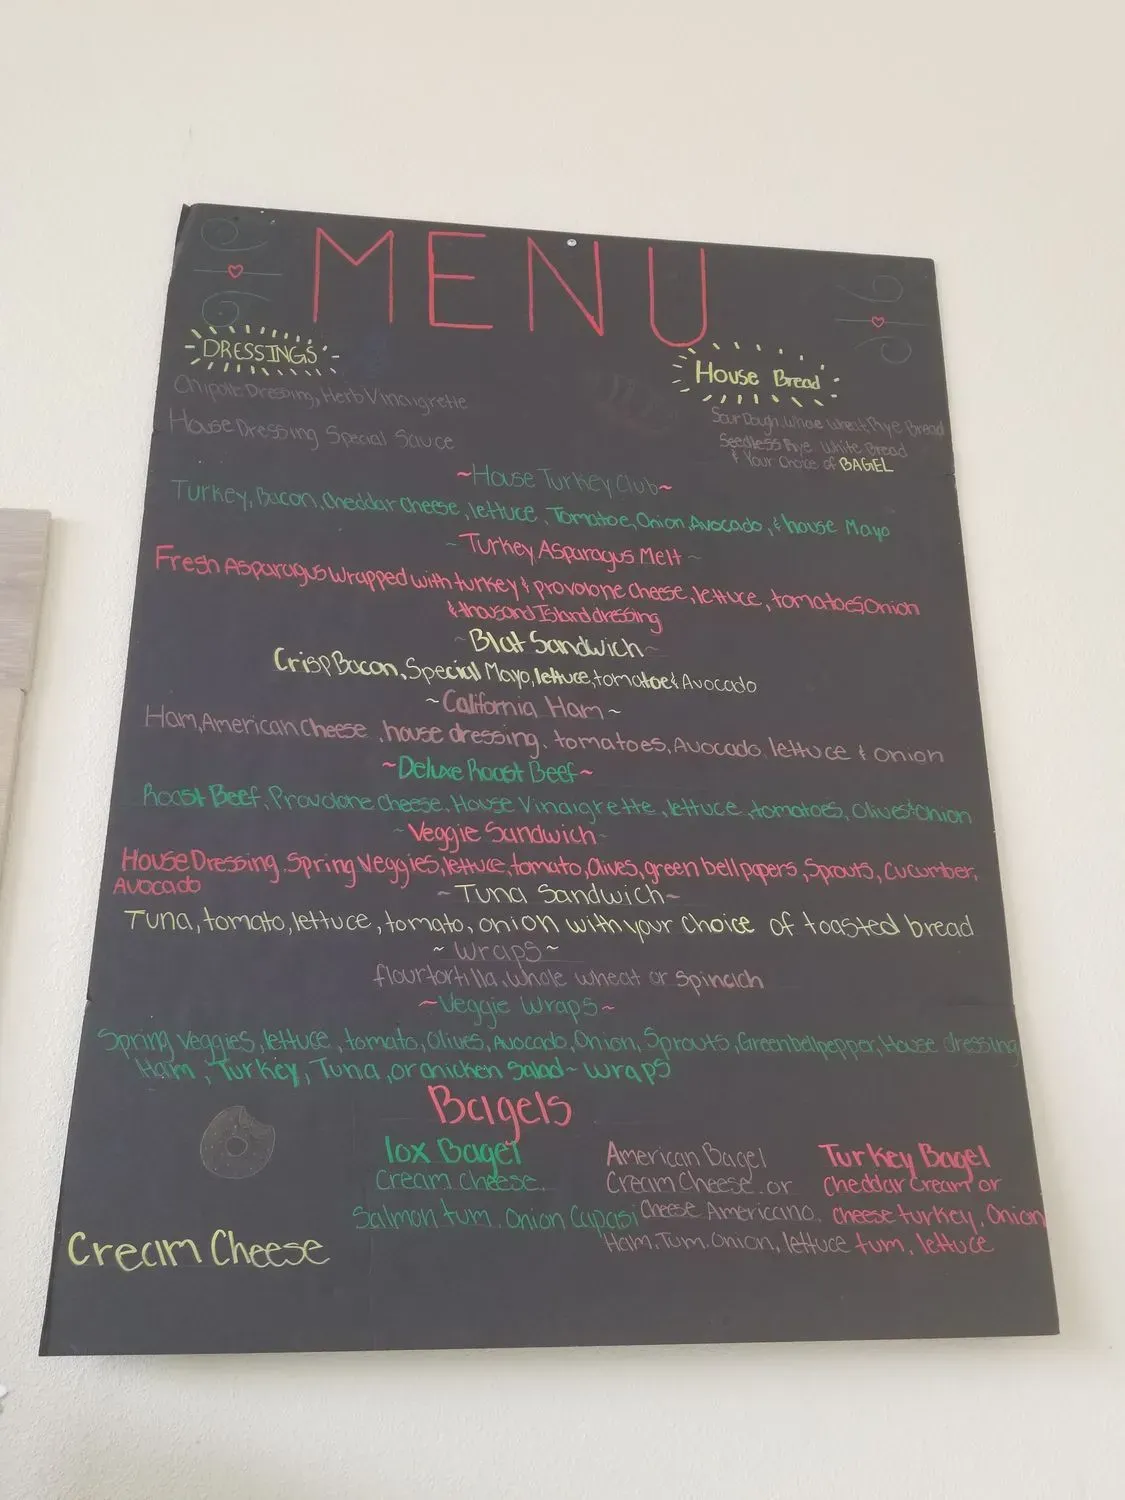 MENU
DRESSINGS
House Bread
Chipotle Dressing, Herb Vinaigrette
House Dressing Special Sauce
Sour Dough, Whole Wheat, Rye Bread
Seedless Rye White Bread
& Your Choice of BAGEL
~House Turkey Club~
Turkey, Bacon, Cheddar Cheese, lettuce, Tomatoe, Onion, Avocado, & house Mayo
~Turkey Asparagus Melt~
Fresh Asparagus Wrapped with turkey & provolone cheese, lettuce, tomatoes, Onion
& thousand Island dressing
~Blat Sandwich~
Crisp Bacon, Special Mayo, lettuce, tomatoe & Avocado
~California Ham~
Ham, American Cheese, house dressing, tomatoes, Avocado, lettuce & onion
~Deluxe Roast Beef~
Roast Beef, Provolone cheese, House Vinaigrette, lettuce, tomatoes, Olives & Onion
~Veggie Sandwich~
House Dressing, Spring Veggies, lettuce, tomato, Olives, green bell papers, Sprouts, Cucumber,
Avocado
~Tuna Sandwich~
Tuna, tomato, lettuce, tomato, onion with your choice of toasted bread
~Wraps~
flour tortilla, whole wheat or Spinach
~Veggie Wraps~
Spring Veggies, lettuce, tomato, Olives, Avocado, Onion, Sprouts, Green bell pepper, House dressing
Ham, Turkey, Tuna, or chicken Salad~ Wraps
Bagels
lox Bagel
Cream Cheese.
Salmon tum, Onion Capasi
American Bagel
Cream Cheese or
Cheese Americano,
Ham, Tum, Onion, lettuce
Turkey Bagel
Cheddar Cream or
cheese turkey, Onion
tum, lettuce
Cream Cheese